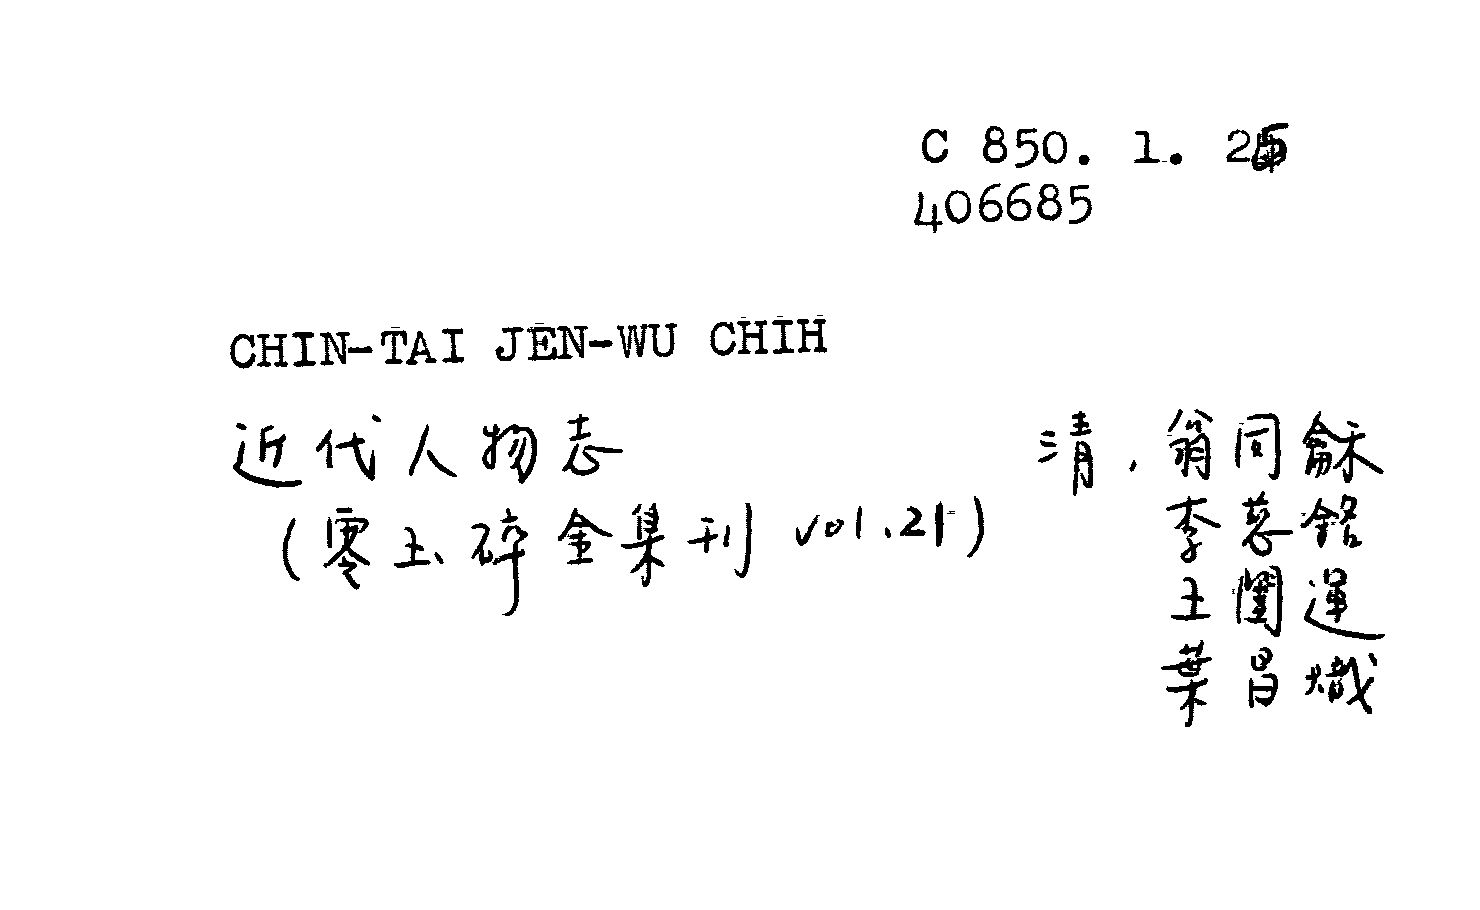 C 850. 1. 25
406685
CHIN-TAI JEN-WU CHIH
近代人物志
清，翁同龢
(零玉碎金集刊 vol.21)
李慈銘
王闓運
葉昌熾